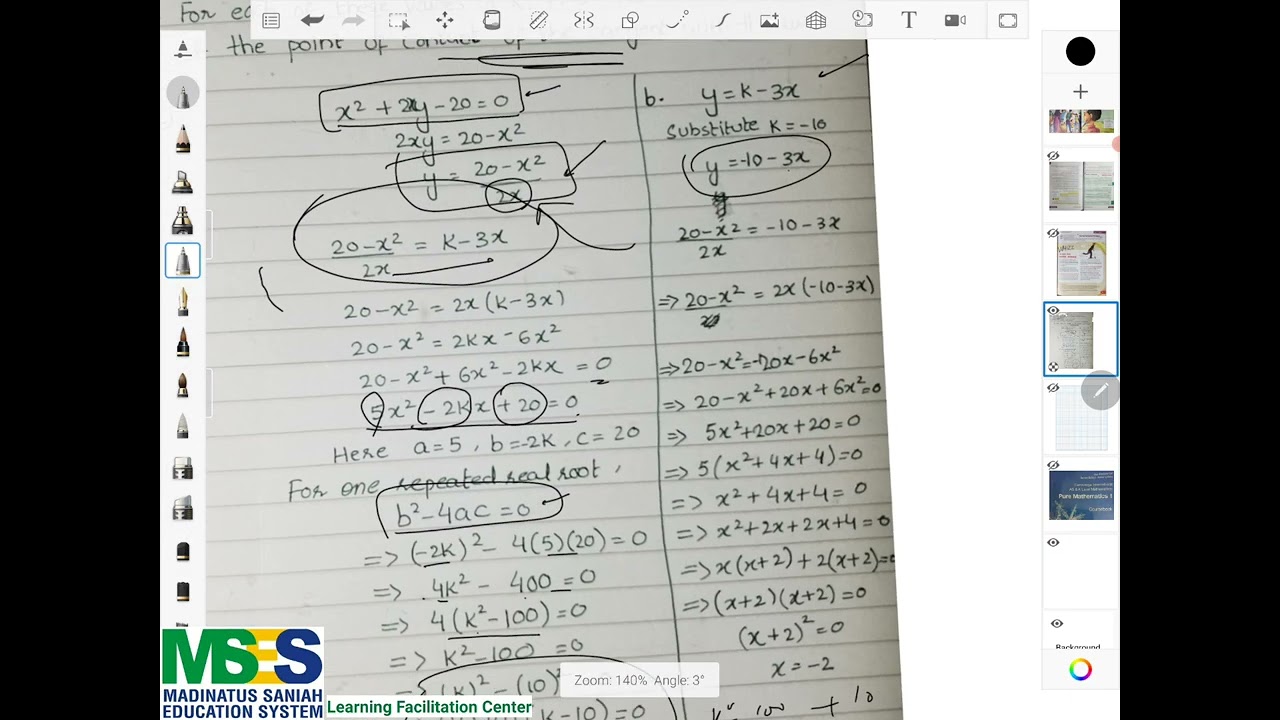 For
the point of contact of
x² + 2xy - 20 = 0
2xy = 20 - x²
y = 20 - x² / 2x
20 - x² / 2x = K - 3x
20 - x² = 2x (K - 3x)
20 - x² = 2Kx - 6x²
20 - x² + 6x² - 2Kx = 0
5x² - 2Kx + 20 = 0
Here a = 5 , b = -2K , c = 20
For one repeated real root ,
b² - 4ac = 0
=> (-2K)² - 4(5)(20) = 0
=> 4K² - 400 = 0
=> 4(K² - 100) = 0
=> K² - 100 = 0
(K)² - (10)²
K - 10) = 0
b. y = K - 3x
Substitute K = -10
y = -10 - 3x
20 - x² / 2x = -10 - 3x
=> 20 - x² = 2x (-10 - 3x)
=> 20 - x² = -20x - 6x²
=> 20 - x² + 20x + 6x² = 0
=> 5x² + 20x + 20 = 0
=> 5(x² + 4x + 4) = 0
=> x² + 4x + 4 = 0
=> x² + 2x + 2x + 4 = 0
=> x(x+2) + 2(x+2) = 0
=> (x+2)(x+2) = 0
(x+2)² = 0
x = -2
T
Zoom: 140% Angle: 3°
MSES
MADINATUS SANIAH
EDUCATION SYSTEM
Learning Facilitation Center
Pure Mathematics 1
Background